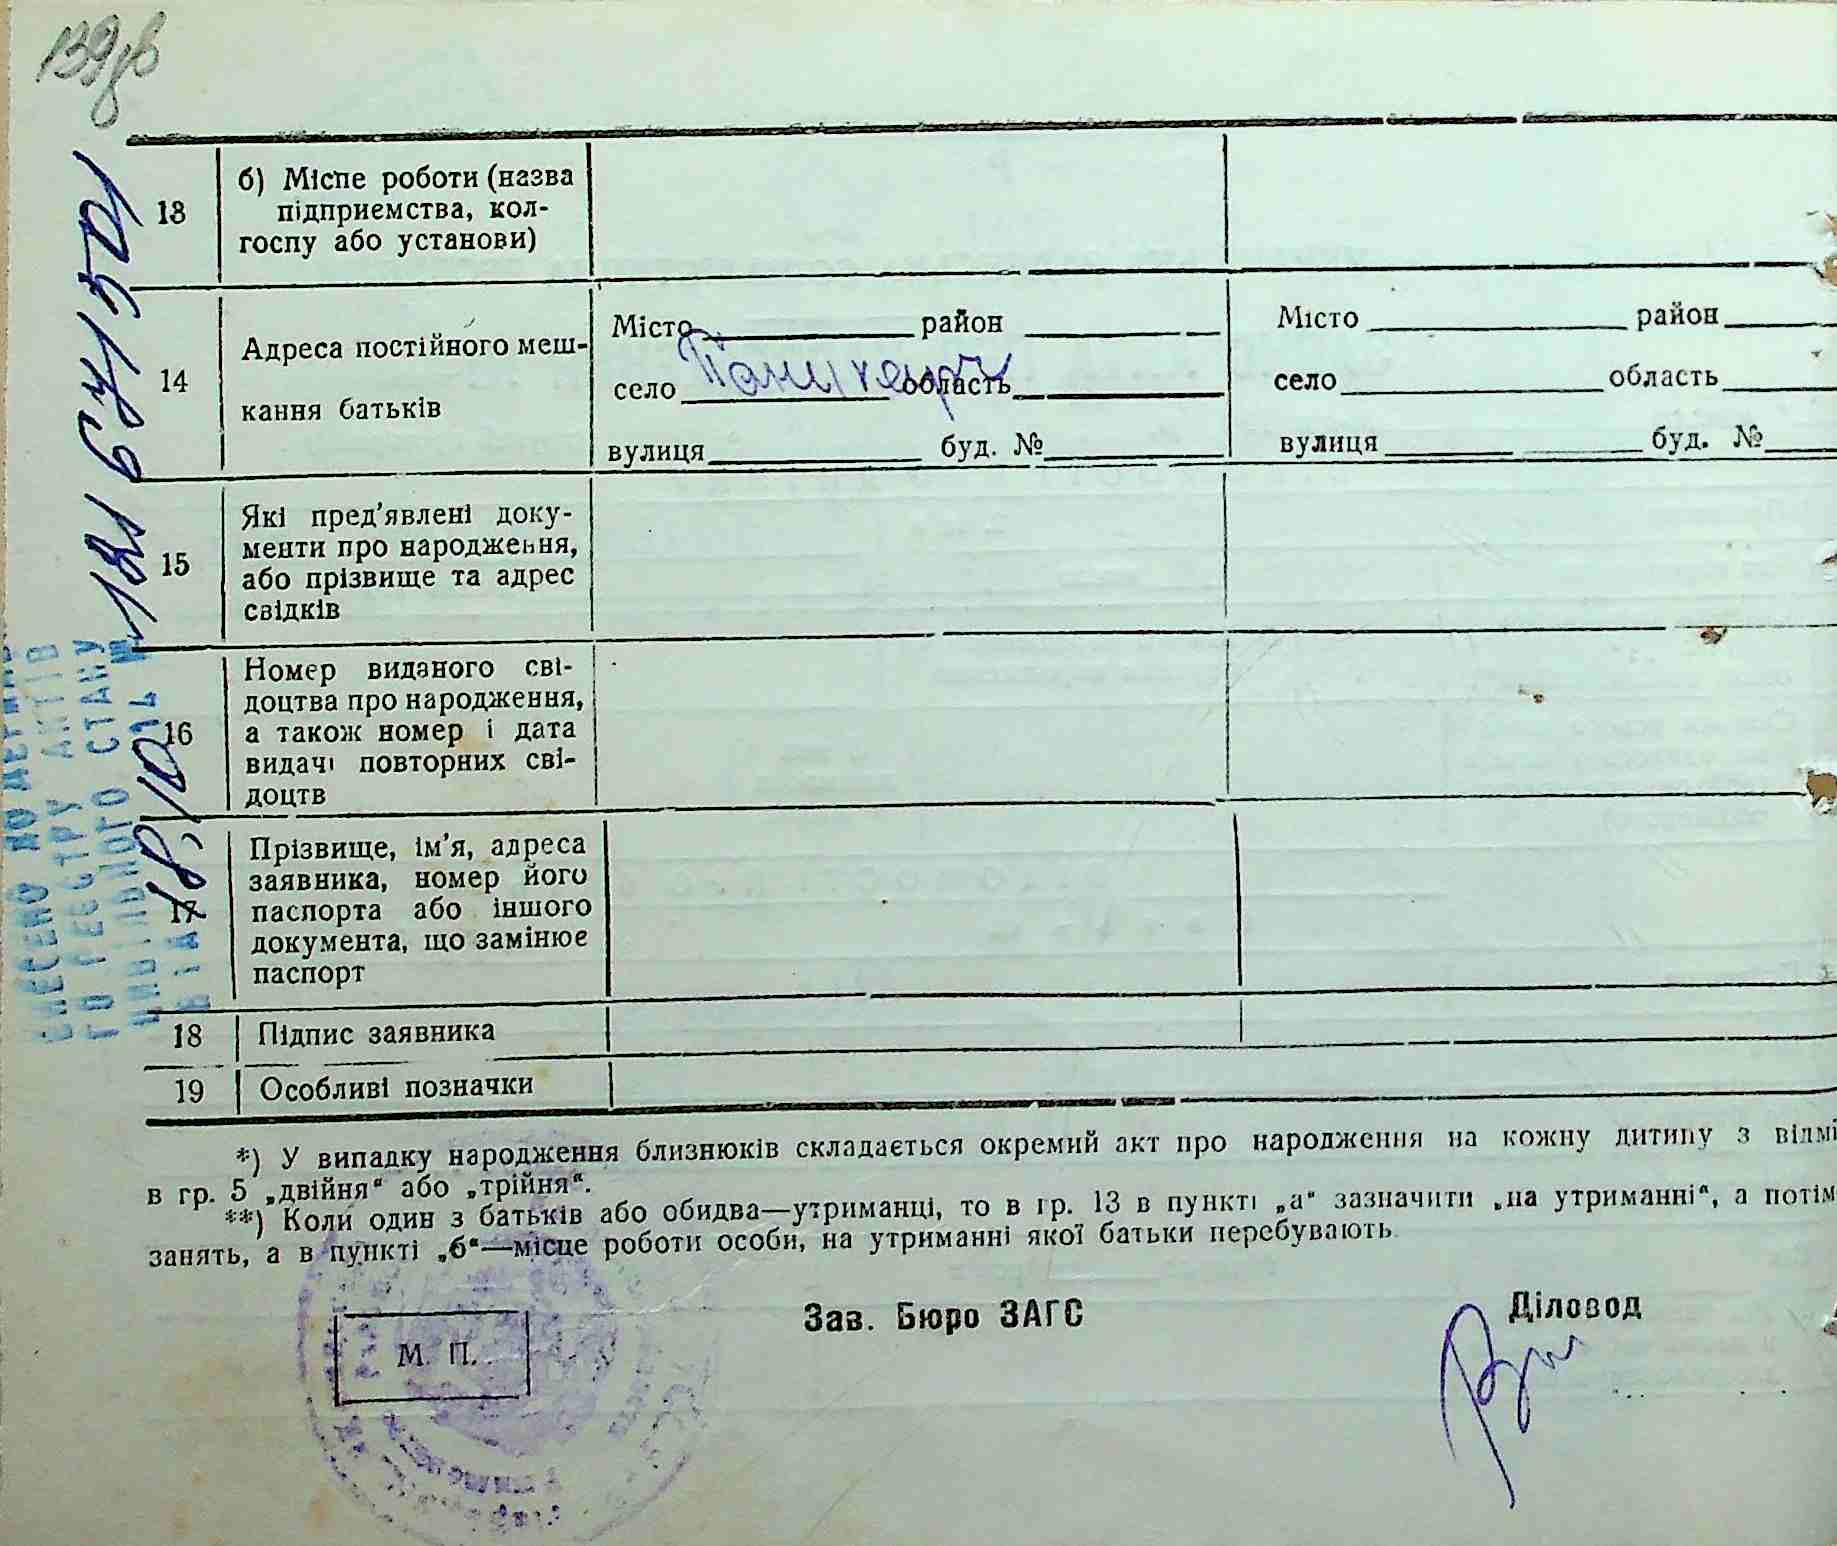 13
б) Місце роботи (назва
підприємства, кол-
госпу або установи)
14
Адреса постійного меш-
кання батьків
Місто район
село область
вулиця буд. №
Місто район
село область
вулиця буд. №
15
Які пред'явлені доку-
менти про народження,
або прізвище та адрес
свідків
16
Номер виданого сві-
доцтва про народження,
а також номер і дата
видачі повторних сві-
доцтв
17
Прізвище, ім'я, адреса
заявника, номер його
паспорта або іншого
документа, що замінює
паспорт
18 Підпис заявника
19 Особливі позначки
*) У випадку народження близнюків складається окремий акт про народження на кожну дитину з відмі
в гр. 5 „двійня“ або „трійня“.
**) Коли один з батьків або обидва—утриманці, то в гр. 13 в пункті „а“ зазначити „на утриманні“, а потім
занять, а в пункті „б“—місце роботи особи, на утриманні якої батьки перебувають.
М. П.
Зав. Бюро ЗАГС
Діловод
ВНЕСЕНО ДО ДЕРЖАВ
ГО РЕЄСТРУ АКТІВ
ЦИВІЛЬНОГО СТАНУ
ЗА №